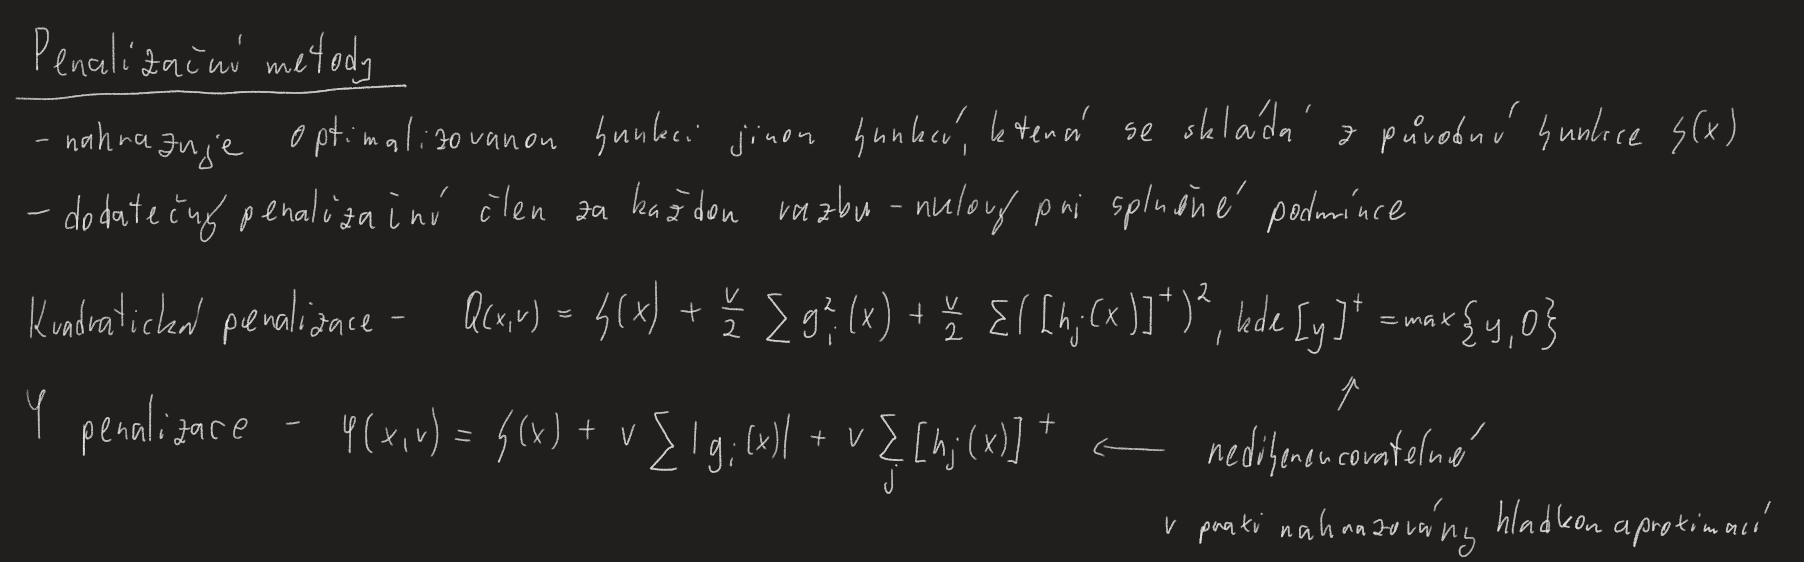 Penalizační metody
- nahrazuje optimalizovanou funkci jinou funkcí, která se skládá z původní funkce f(x)
- dodatečný penalizační člen za každou vazbu - nulový při splněné podmínce
Kvadratická penalizace - Q(x,v) = f(x) + v/2 ∑ g_i²(x) + v/2 ∑([h_j(x)]⁺)², kde [y]⁺ = max{y,0}
φ penalizace - φ(x,v) = f(x) + v ∑ |g_i(x)| + v ∑_j [h_j(x)]⁺ ← nediferencovatelné ↑
v praxi nahrazovány hladkou aproximací